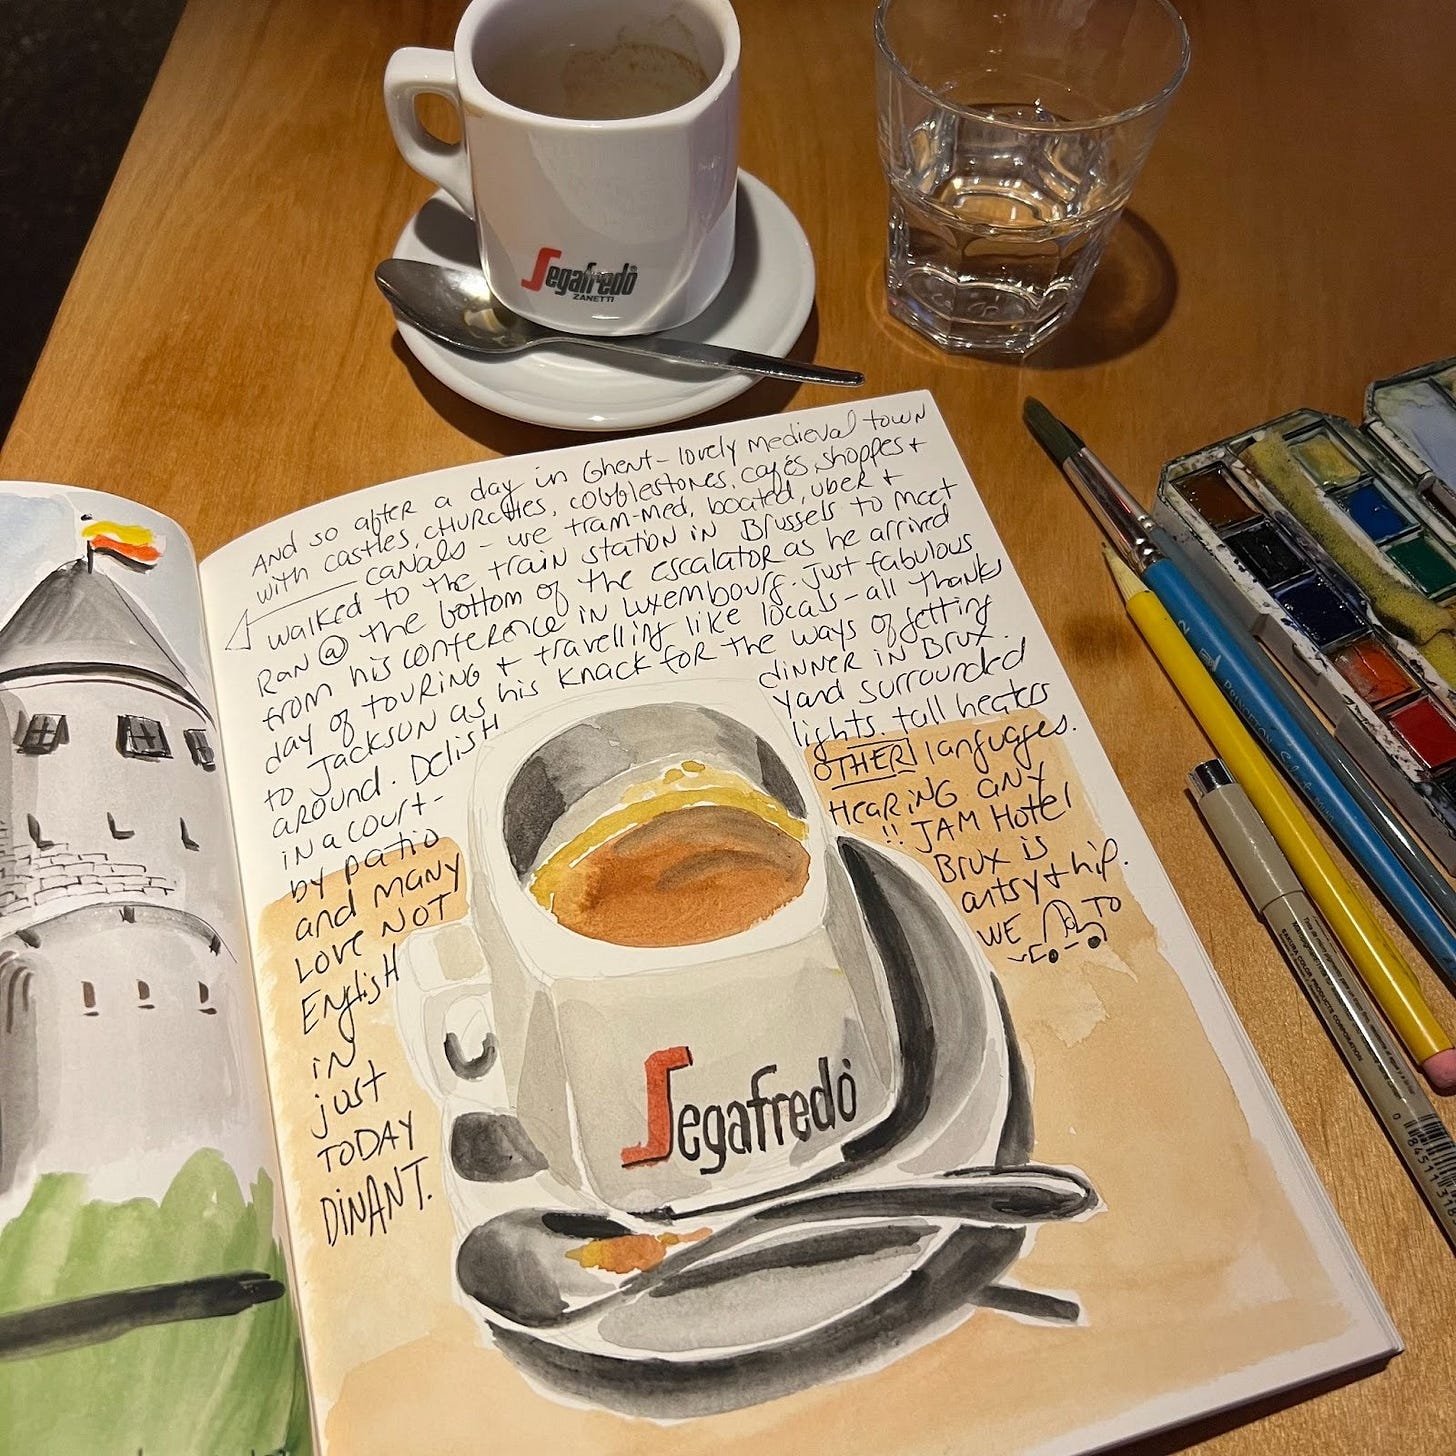 Segafredo
ZANETTI
And so after a day in Ghent - lovely medieval town
with castles, CHURCHES, cobblestones, cafés, shoppes +
canals - we tram-med, boated, uber +
walked to the train station in Brussels to meet
Ran @ the bottom of the escalator as he arrived
from his conference in Luxembourg. Just fabulous
day of touring + travelling like locals - all thanks
to Jackson as his knack for the ways of getting
around. Delish dinner in Brux.
in a court- yard surrounded
by patio lights, tall heaters
and many OTHER languages.
Love NOT HEARING any
English !! JAM Hotel
in Brux is
just artsy + hip.
TODAY WE TO
DINANT.
Segafredo
2
PRINCETON
SAKURA COLOR PRODUCTS CORPORATION